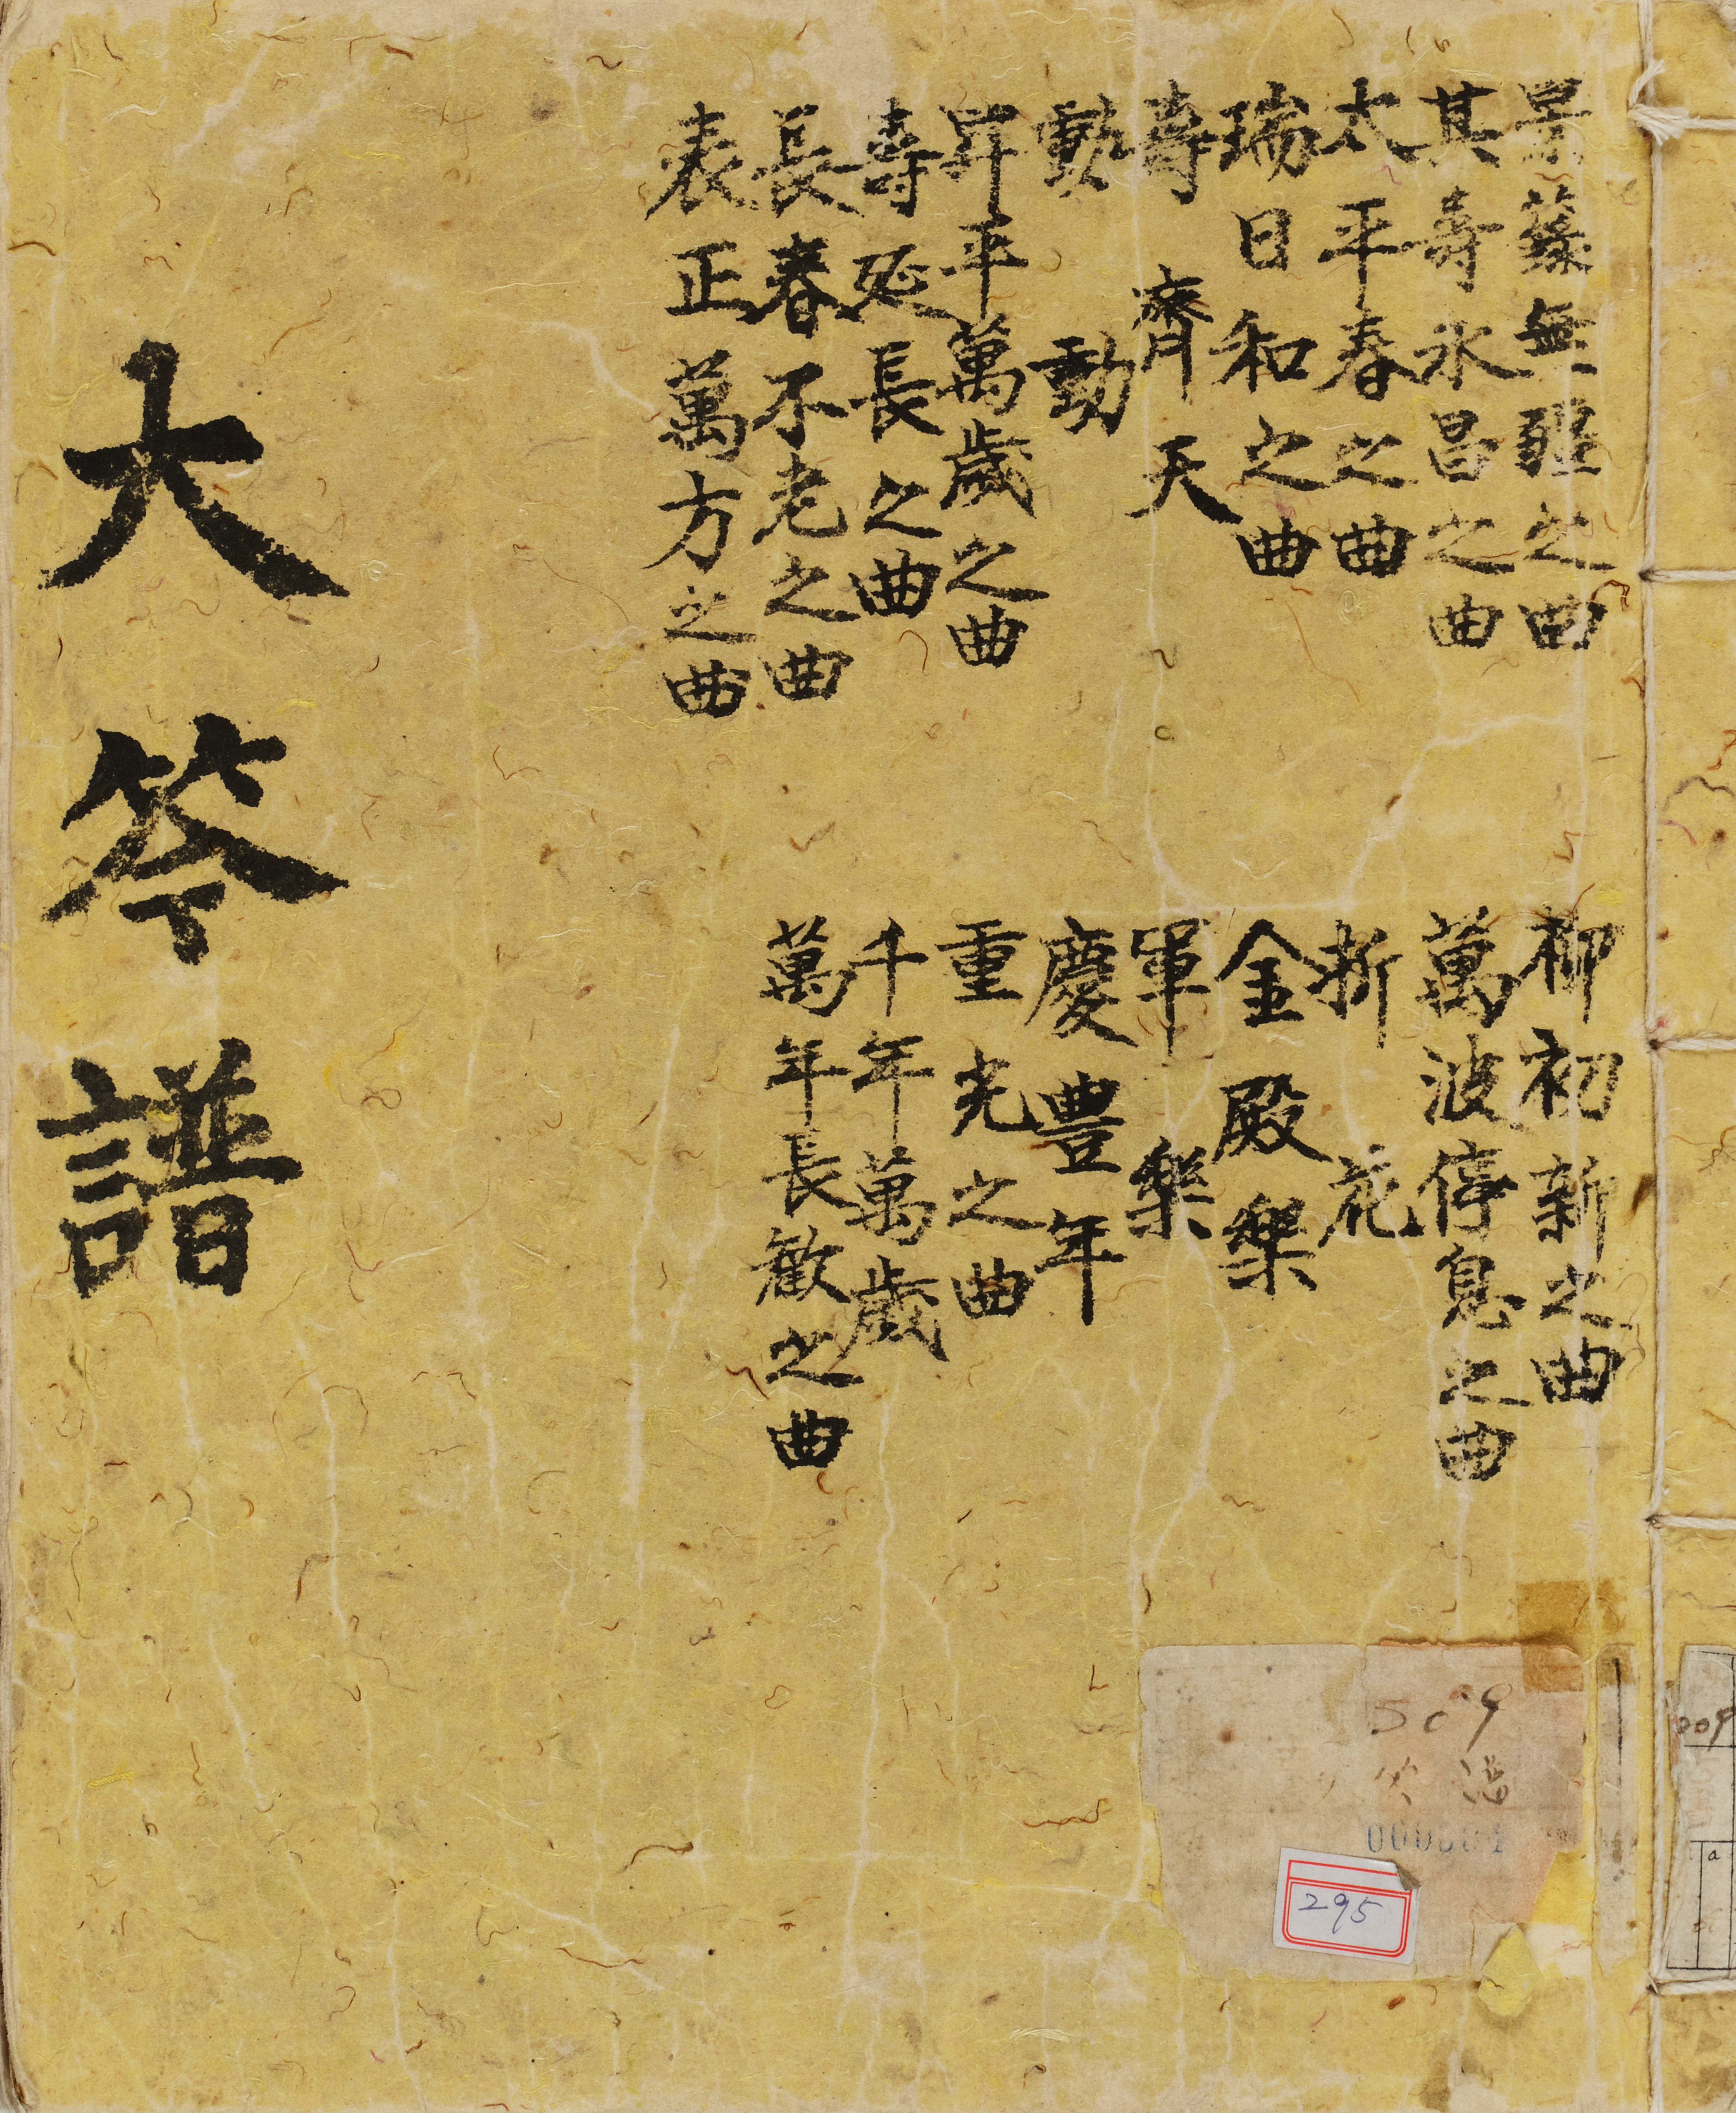 景籙無疆之曲
其壽永昌之曲
太平春之曲
瑞日和之曲
壽齊天
動動
昇平萬歲之曲
壽延長之曲
長春不老之曲
表正萬方之曲
柳初新之曲
萬波停息之曲
折花
金殿樂
軍樂
慶豊年
重光之曲
千年萬歲
萬年長歡之曲
大笒譜
509
295